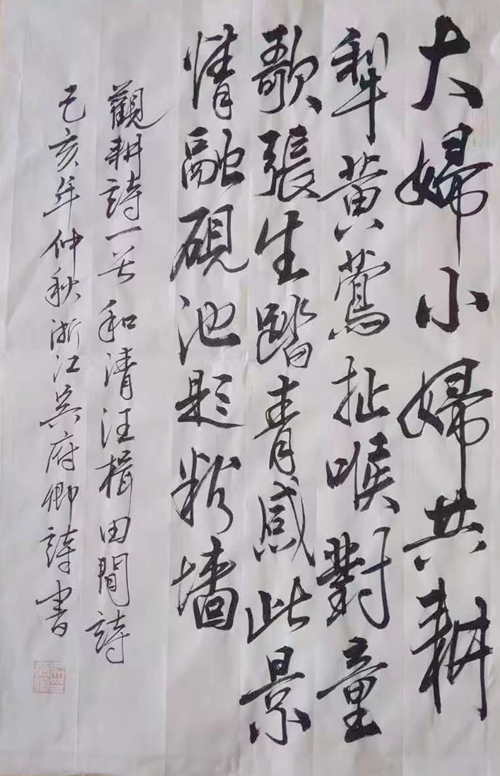 大婦小婦共耕
犁黄鶯扯喉對童
歌張生踏青感此景
情融硯池題粉墻
觀耕詩一首和清汪楫田間詩
己亥年仲秋浙江吴府卿詩書